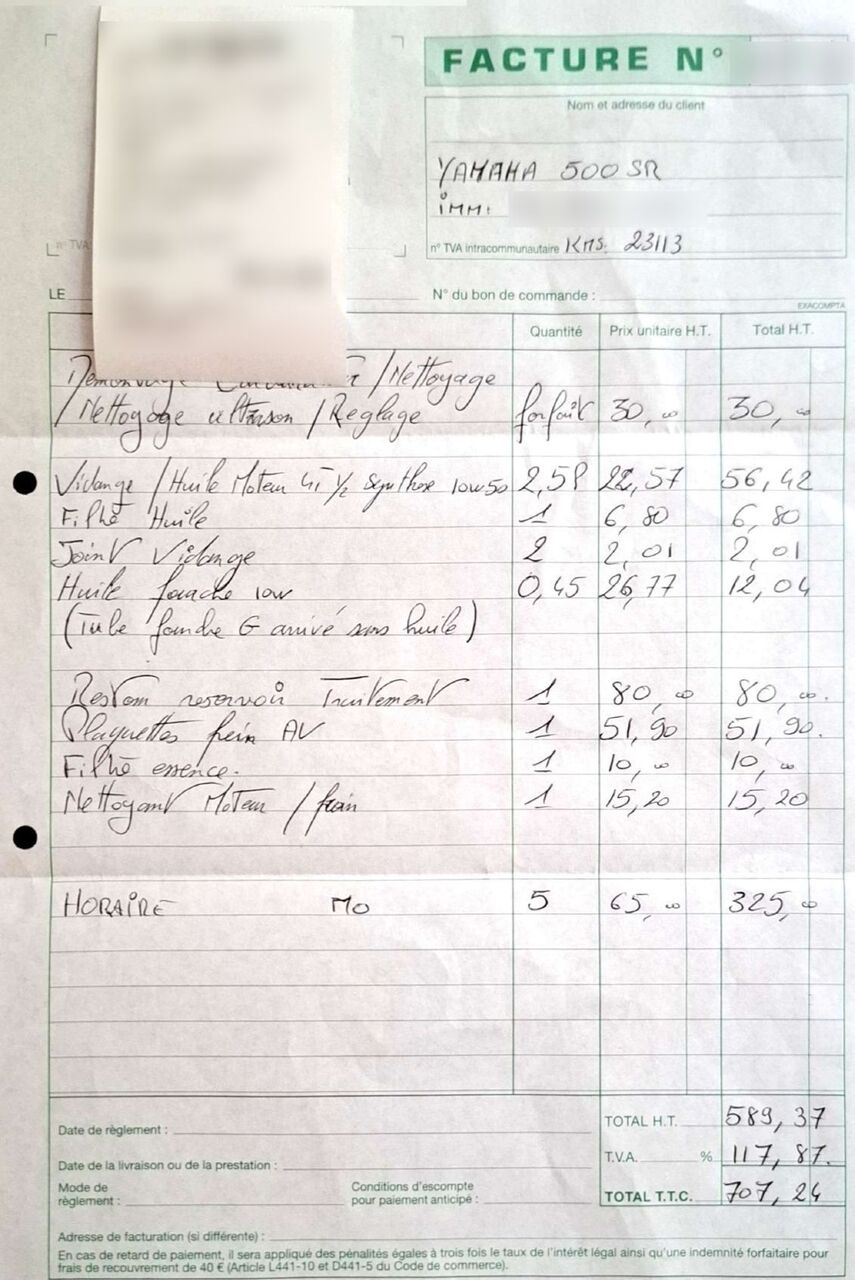 FACTURE N°
Nom et adresse du client
YAMAHA 500 SR
imm:
n° TVA intracommunautaire Kms. 23113
n° TVA
LE
N° du bon de commande :
EXACOMPTA
Quantité Prix unitaire H.T. Total H.T.
/Nettoyage
/Nettoyage ultrason /Reglage forfait 30,00 30,00
Vidange /Huile Moteur 4T 1/2 Synthese 10w50 2,58 22,57 56,42
Filtre Huile 1 6,80 6,80
Joint Vidange 2 2,01 2,01
Huile fourche 10w 0,45 26,77 12,04
(Tube fourche G arrivé sans huile)
Restom reservoir Traitement 1 80,00 80,00.
Plaquettes frein AV 1 51,90 51,90.
Filtre essence. 1 10,00 10,00
Nettoyant Moteur /frein 1 15,20 15,20
HORAIRE MO 5 65,00 325,00
TOTAL H.T. 589,37
Date de règlement :
T.V.A. % 117,87.
Date de la livraison ou de la prestation :
Mode de règlement :
Conditions d'escompte pour paiement anticipé :
TOTAL T.T.C. 707,24
Adresse de facturation (si différente) :
En cas de retard de paiement, il sera appliqué des pénalités égales à trois fois le taux de l'intérêt légal ainsi qu'une indemnité forfaitaire pour
frais de recouvrement de 40 € (Article L441-10 et D441-5 du Code de commerce).